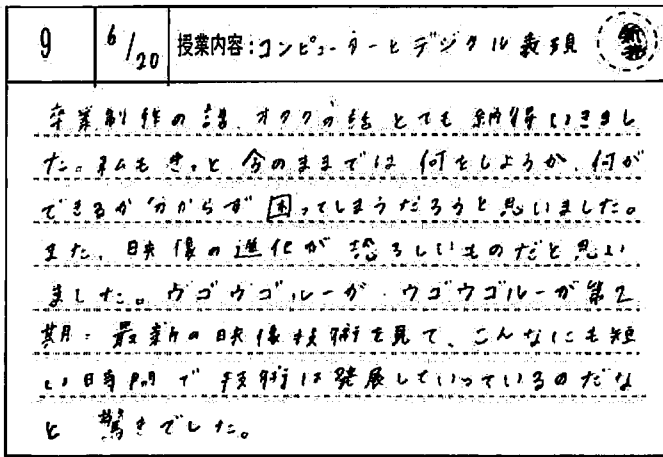 9 6/20 授業内容:コンピューターとデジタル表現
卒業制作の話、オタクの話とても納得いきまし
た。私もきっと今のままでは何をしようか、何が
できるか分からず困ってしまうだろうと思いました。
また、映像の進化が恐ろしいものだと思い
ました。ウゴウゴルーガ、ウゴウゴルーガ第2
期・最新の映像技術を見て、こんなにも短
い時間で技術は発展していっているのだな
と驚きでした。